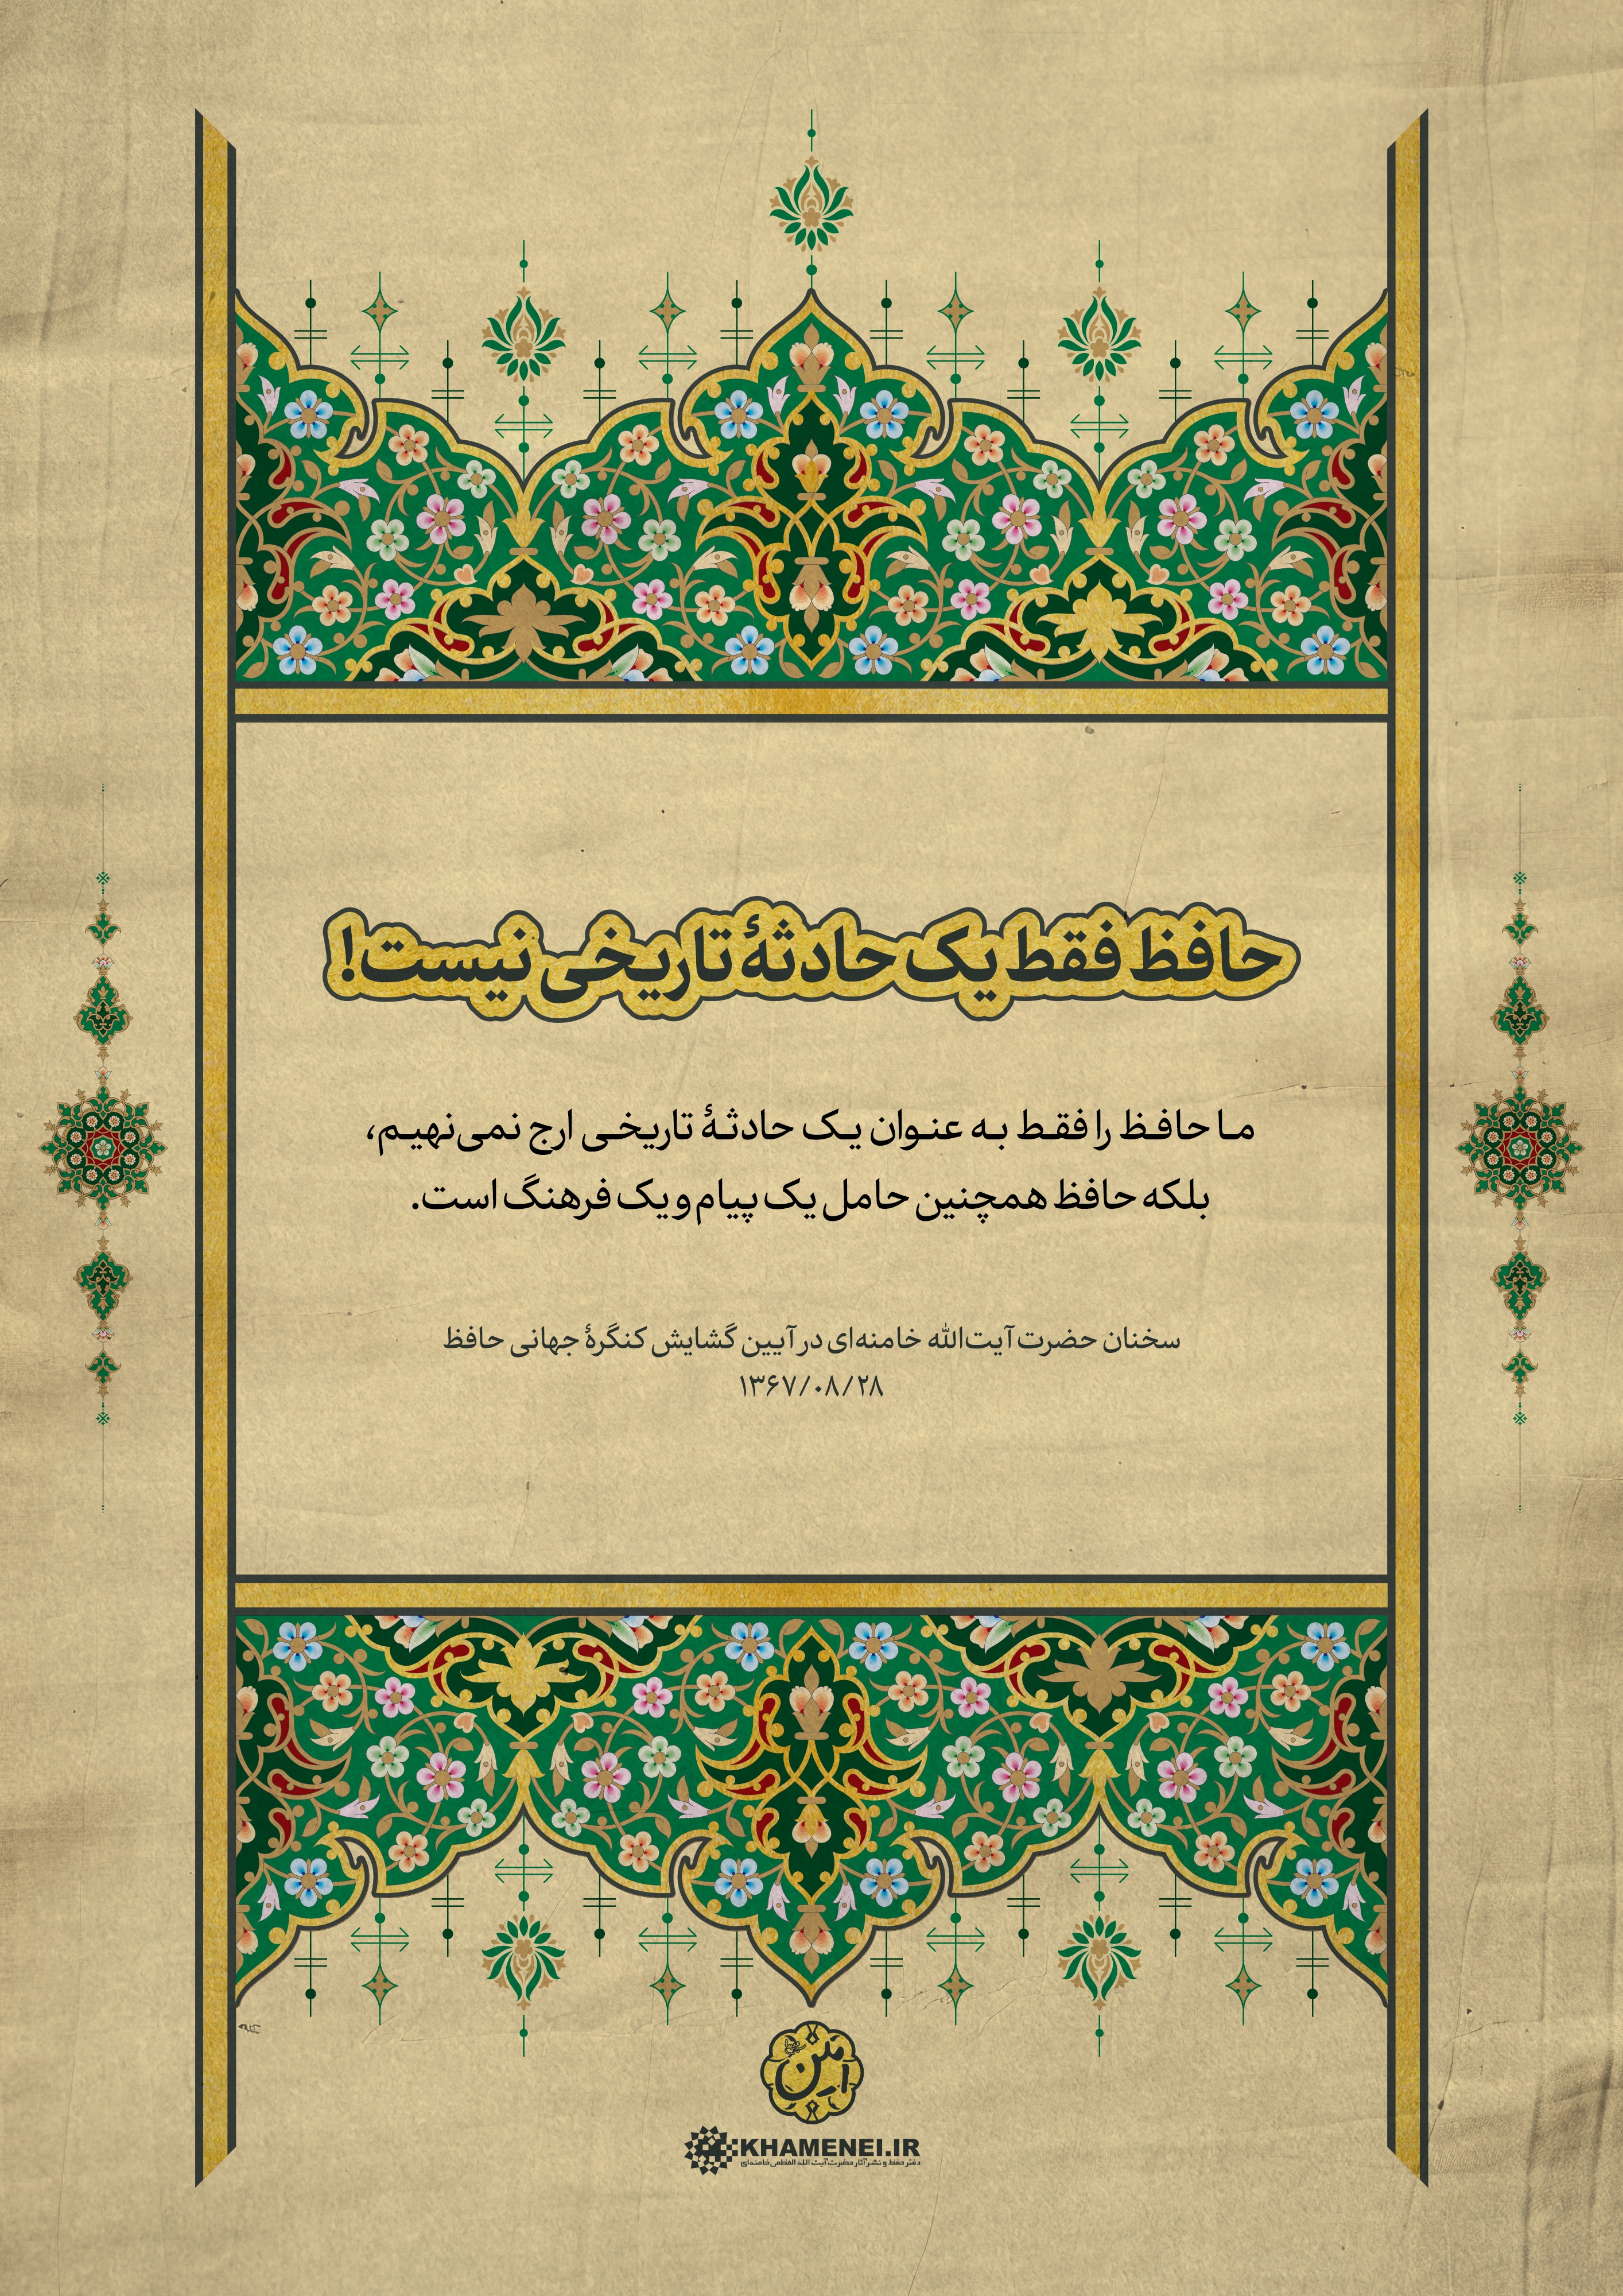 حافظ فقط یک حادثهٔ تاریخی نیست!
ما حافظ را فقط به عنوان یک حادثهٔ تاریخی ارج نمی‌نهیم،
بلکه حافظ همچنین حامل یک پیام و یک فرهنگ است.
سخنان حضرت آیت‌الله خامنه‌ای در آیین گشایش کنگرهٔ جهانی حافظ
۱۳۶۷/۰۸/۲۸
KHAMENEI.IR
دفتر حفظ و نشر آثار حضرت آیت الله العظمی خامنه‌ای